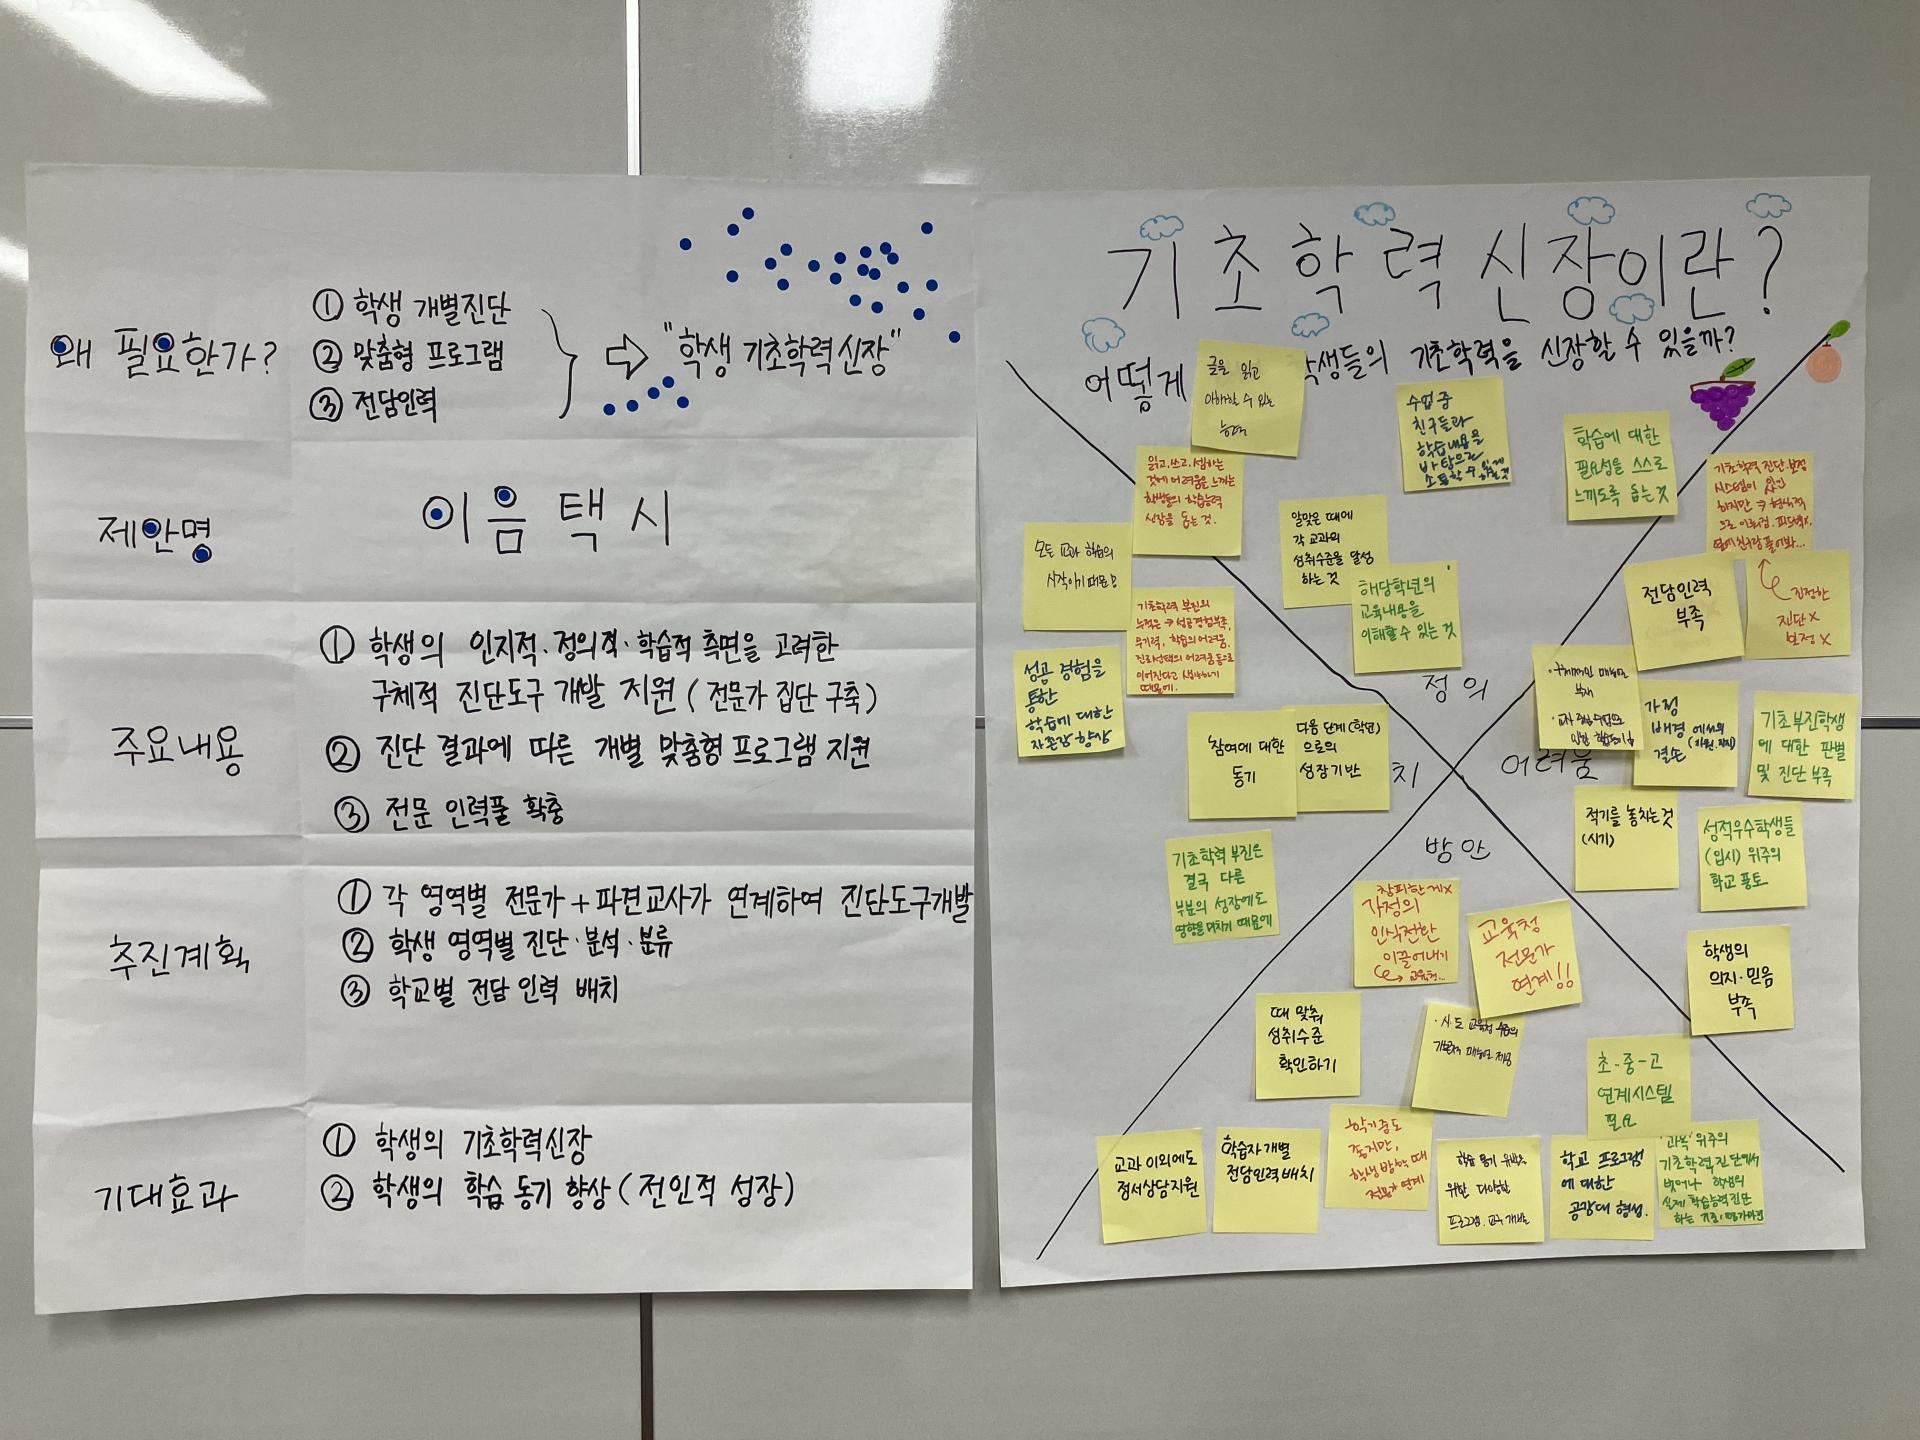 왜 필요한가?
① 학생 개별진단
② 맞춤형 프로그램
③ 전담인력
"학생 기초학력신장"
제안명
이음택시
주요내용
① 학생의 인지적·정의적·학습적 측면을 고려한
구체적 진단도구 개발 지원 (전문가 집단 구축)
② 진단 결과에 따른 개별 맞춤형 프로그램 지원
③ 전문 인력풀 확충
추진계획
① 각 영역별 전문가 + 파견교사가 연계하여 진단도구개발
② 학생 영역별 진단·분석·분류
③ 학교별 전담 인력 배치
기대효과
① 학생의 기초학력신장
② 학생의 학습 동기 향상 (전인적 성장)
기초학력신장이란?
어떻게 학생들의 기초학력을 신장할 수 있을까?
글을 읽고
이해할 수 있는
능력
수업 중
친구들과
학습내용을
바탕으로
소통할 수 있게
학습에 대한
필요성을 스스로
느끼도록 돕는 것
읽고, 쓰고, 셈하는
것에 어려움을 느끼는
학생들의 학습능력
신장을 돕는 것.
알맞은 때에
각 교과의
성취수준을 달성
하는 것
해당학년의
교육내용을
이해할 수 있는 것
정의
모든 교과 학습의
시작이기 때문!
기초학력 부진의
누적은 → 성공경험부족,
무기력, 학습의 어려움,
진로선택의 어려움 등으로
이어진다고 생각하기
때문에.
성공 경험을
통한
학습에 대한
자존감 향상
참여에 대한
동기
다음 단계(학년)
으로의
성장기반
치
기초학력 부진은
결국 다른
부분의 성장에도
영향을 미치기 때문에
기초학력 진단·보정
시스템이 있긴
하지만 → 형식적
으로 이루어짐. 피드백X.
진정한
진단X
보정X
전담인력
부족
부재
가정
배경에서의
결손
기초부진학생
에 대한 판별
및 진단 부족
어려움
적기를 놓치는 것
(시기)
성적우수학생들
(입시) 위주의
학교 풍토
학생의
의지·믿음
부족
방안
창피한 게X
가정의
인식전환
이끌어내기
교육청...
교육청
전문가
연계!!
때 맞춰
성취수준
확인하기
·시·도 교육청 수준의
초-중-고
연계시스템
필요
교과 이외에도
정서상담지원
학습자 개별
전담인력 배치
학기중도
좋지만,
학생 방학 때
전문가 연계
학습 동기 유발을
위한 다양한
프로그램, 교구 개발
학교 프로그램
에 대한
공감대 형성.
'과목' 위주의
기초학력진단에서
벗어나 학생의
실제 학습능력진단